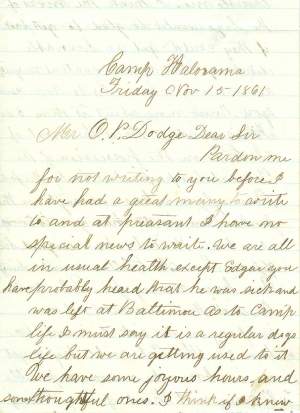 Camp Halorama
Friday Nov 15-1861
Mr O.P. Dodge Dear Sir
Pardon me
for not writing to you before I
have had a great many to write
to and at preasant I have no
special news to write. We are all
in usual health except Edgar you
have probably heard that he was sick and
was left at Baltimore as to Camp
life I must say it is a regular dogs
life but we are getting used to it
We have some joyous hours and
some thoughtful ones. I think if I knew